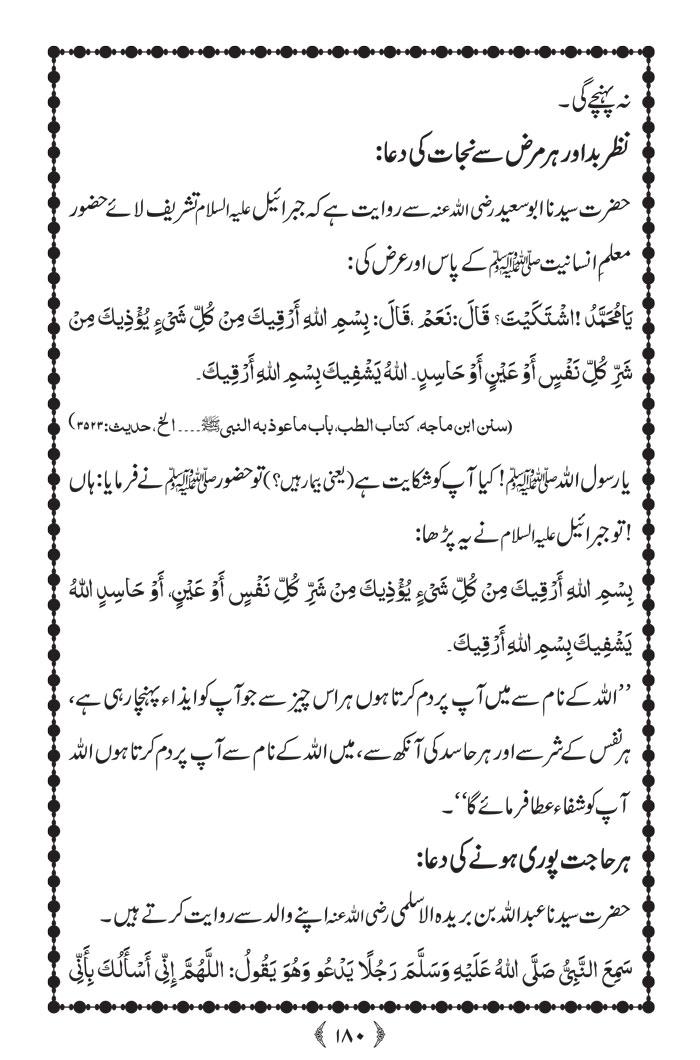 نہ پہنچے گی ۔
نظر بد اور ہر مرض سے نجات کی دعا:
حضرت سیدنا ابو سعید رضی اللہ عنہ سے روایت ہے کہ جبرائیل علیہ السلام تشریف لائے حضور
معلمِ انسانیت ﷺ کے پاس اور عرض کی:
يَا مُحَمَّدُ !اشْتَكَيْتَ؟ قَالَ:نَعَمْ ،قَالَ: بِسْمِ اللهِ أَرْقِيكَ مِنْ كُلِّ شَيْءٍ يُؤْذِيكَ مِنْ
شَرِّ كُلِّ نَفْسٍ أَوْ عَيْنٍ أَوْ حَاسِدٍ۔ اللهُ يَشْفِيكَ بِسْمِ اللهِ أَرْقِيكَ۔
(سنن ابن ماجه، كتاب الطب، باب ماعوذ به النبی ﷺ ۔۔۔۔ الخ، حدیث:۳۵۲۳)
یا رسول اللہ ﷺ! کیا آپ کو شکایت ہے (یعنی بیمار ہیں؟) تو حضور ﷺ نے فرمایا: ہاں
! تو جبرائیل علیہ السلام نے یہ پڑھا:
بِسْمِ اللهِ أَرْقِيكَ مِنْ كُلِّ شَيْءٍ يُؤْذِيكَ مِنْ شَرِّ كُلِّ نَفْسٍ أَوْ عَيْنٍ، أَوْ حَاسِدٍ اللهُ
يَشْفِيكَ بِسْمِ اللهِ أَرْقِيكَ۔
’’اللہ کے نام سے میں آپ پر دم کرتا ہوں ہر اس چیز سے جو آپ کو ایذاء پہنچا رہی ہے،
ہر نفس کے شر سے اور ہر حاسد کی آنکھ سے، میں اللہ کے نام سے آپ پر دم کرتا ہوں اللہ
آپ کو شفاء عطا فرمائے گا‘‘۔
ہر حاجت پوری ہونے کی دعا:
حضرت سیدنا عبد اللہ بن بریدہ الاسلمی رضی اللہ عنہ اپنے والد سے روایت کرتے ہیں ۔
سَمِعَ النَّبِيُّ صَلَّى اللهُ عَلَيْهِ وَسَلَّمَ رَجُلًا يَدْعُو وَهُوَ يَقُولُ: اللَّهُمَّ إِنِّي أَسْأَلُكَ بِأَنِّي
﴿۱۸۰﴾